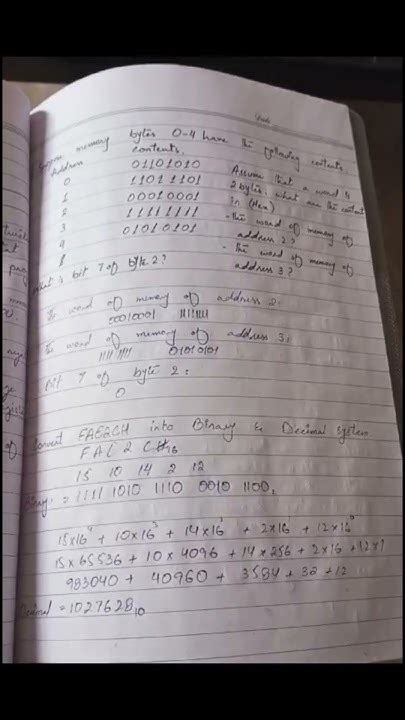 Date
Suppose memory bytes 0-4 have the following contents.
Address contents.
0 01101010
1 11011101
2 00010001
3 11111111
4 01010101
Assume that a word is
2 bytes, what are the content
in (Hex)
- the word of memory of
address 2?
- the word of memory of
address 3?
What is bit 7 of byte 2?
The word of memory of address 2:
00010001 11111111
The word of memory of address 3:
11111111 01010101
Bit 7 of byte 2:
0
Convert FAE2CH into Binary & Decimal system
15 10 14 2 12
Binary: = 1111 1010 1110 0010 1100₂
15x16⁴ + 10x16³ + 14x16² + 2x16 + 12x16⁰
15x65536 + 10x4096 + 14x256 + 2x16 + 12x1
983040 + 40960 + 3584 + 32 + 12
Decimal = 1027628₁₀